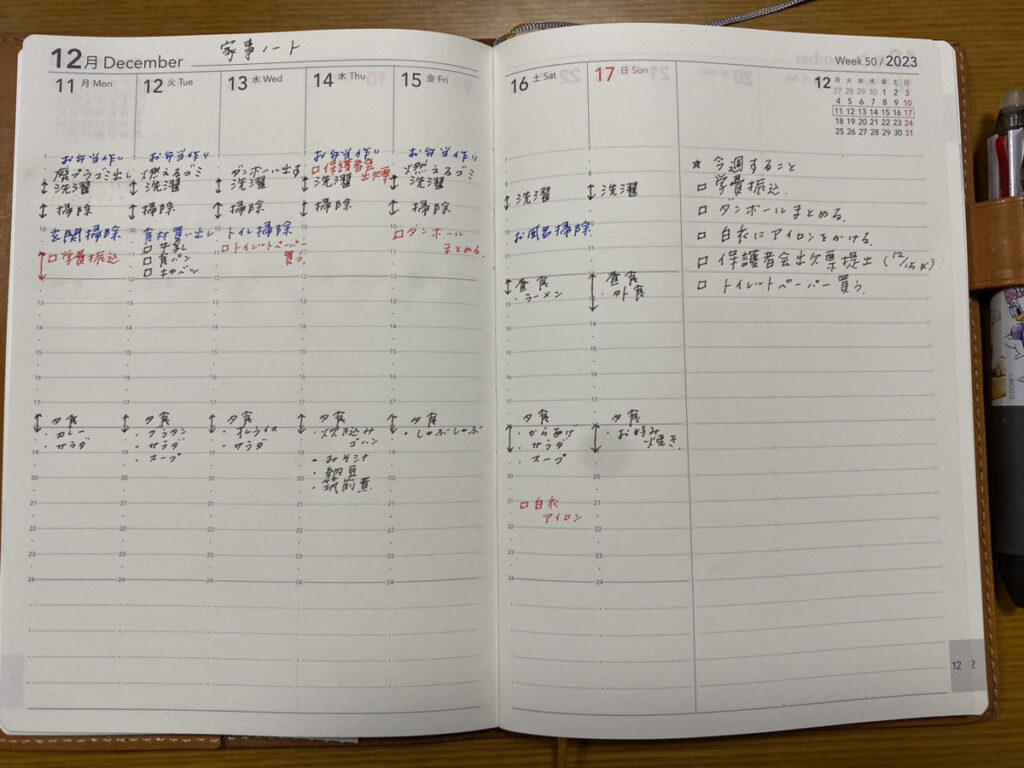 家事ノート
12月 December
11 月 Mon
お弁当作り
廃プラゴミ出し
洗濯
掃除
玄関掃除
□学費振込
夕食
・カレー
・サラダ
12 火 Tue
お弁当作り
燃えるゴミ
洗濯
掃除
食材買い出し
□牛乳
□食パン
□キャベツ
夕食
・グラタン
・サラダ
・スープ
13 水 Wed
ダンボール出す
洗濯
掃除
トイレ掃除
□トイレットペーパー
買う
夕食
・オムライス
・サラダ
14 木 Thu
お弁当作り
□保護者会
出欠票
洗濯
掃除
夕食
・炊き込み
ゴハン
・みそ汁
・納豆
・筑前煮
15 金 Fri
お弁当作り
燃えるゴミ
洗濯
掃除
□ダンボール
まとめる
夕食
・しゃぶしゃぶ
16 土 Sat
洗濯
お風呂掃除
昼食
・ラーメン
夕食
・からあげ
・サラダ
・スープ
□白衣
アイロン
17 日 Sun
洗濯
昼食
・外食
夕食
・お好み
焼き
Week 50 / 2023
12
月 火 水 木 金 土 日
27 28 29 30 1 2 3
4 5 6 7 8 9 10
11 12 13 14 15 16 17
18 19 20 21 22 23 24
25 26 27 28 29 30 31
★今週すること
□学費振込
□ダンボールまとめる
□白衣にアイロンをかける
□保護者会出欠票提出(12/15〆)
□トイレットペーパー買う
12